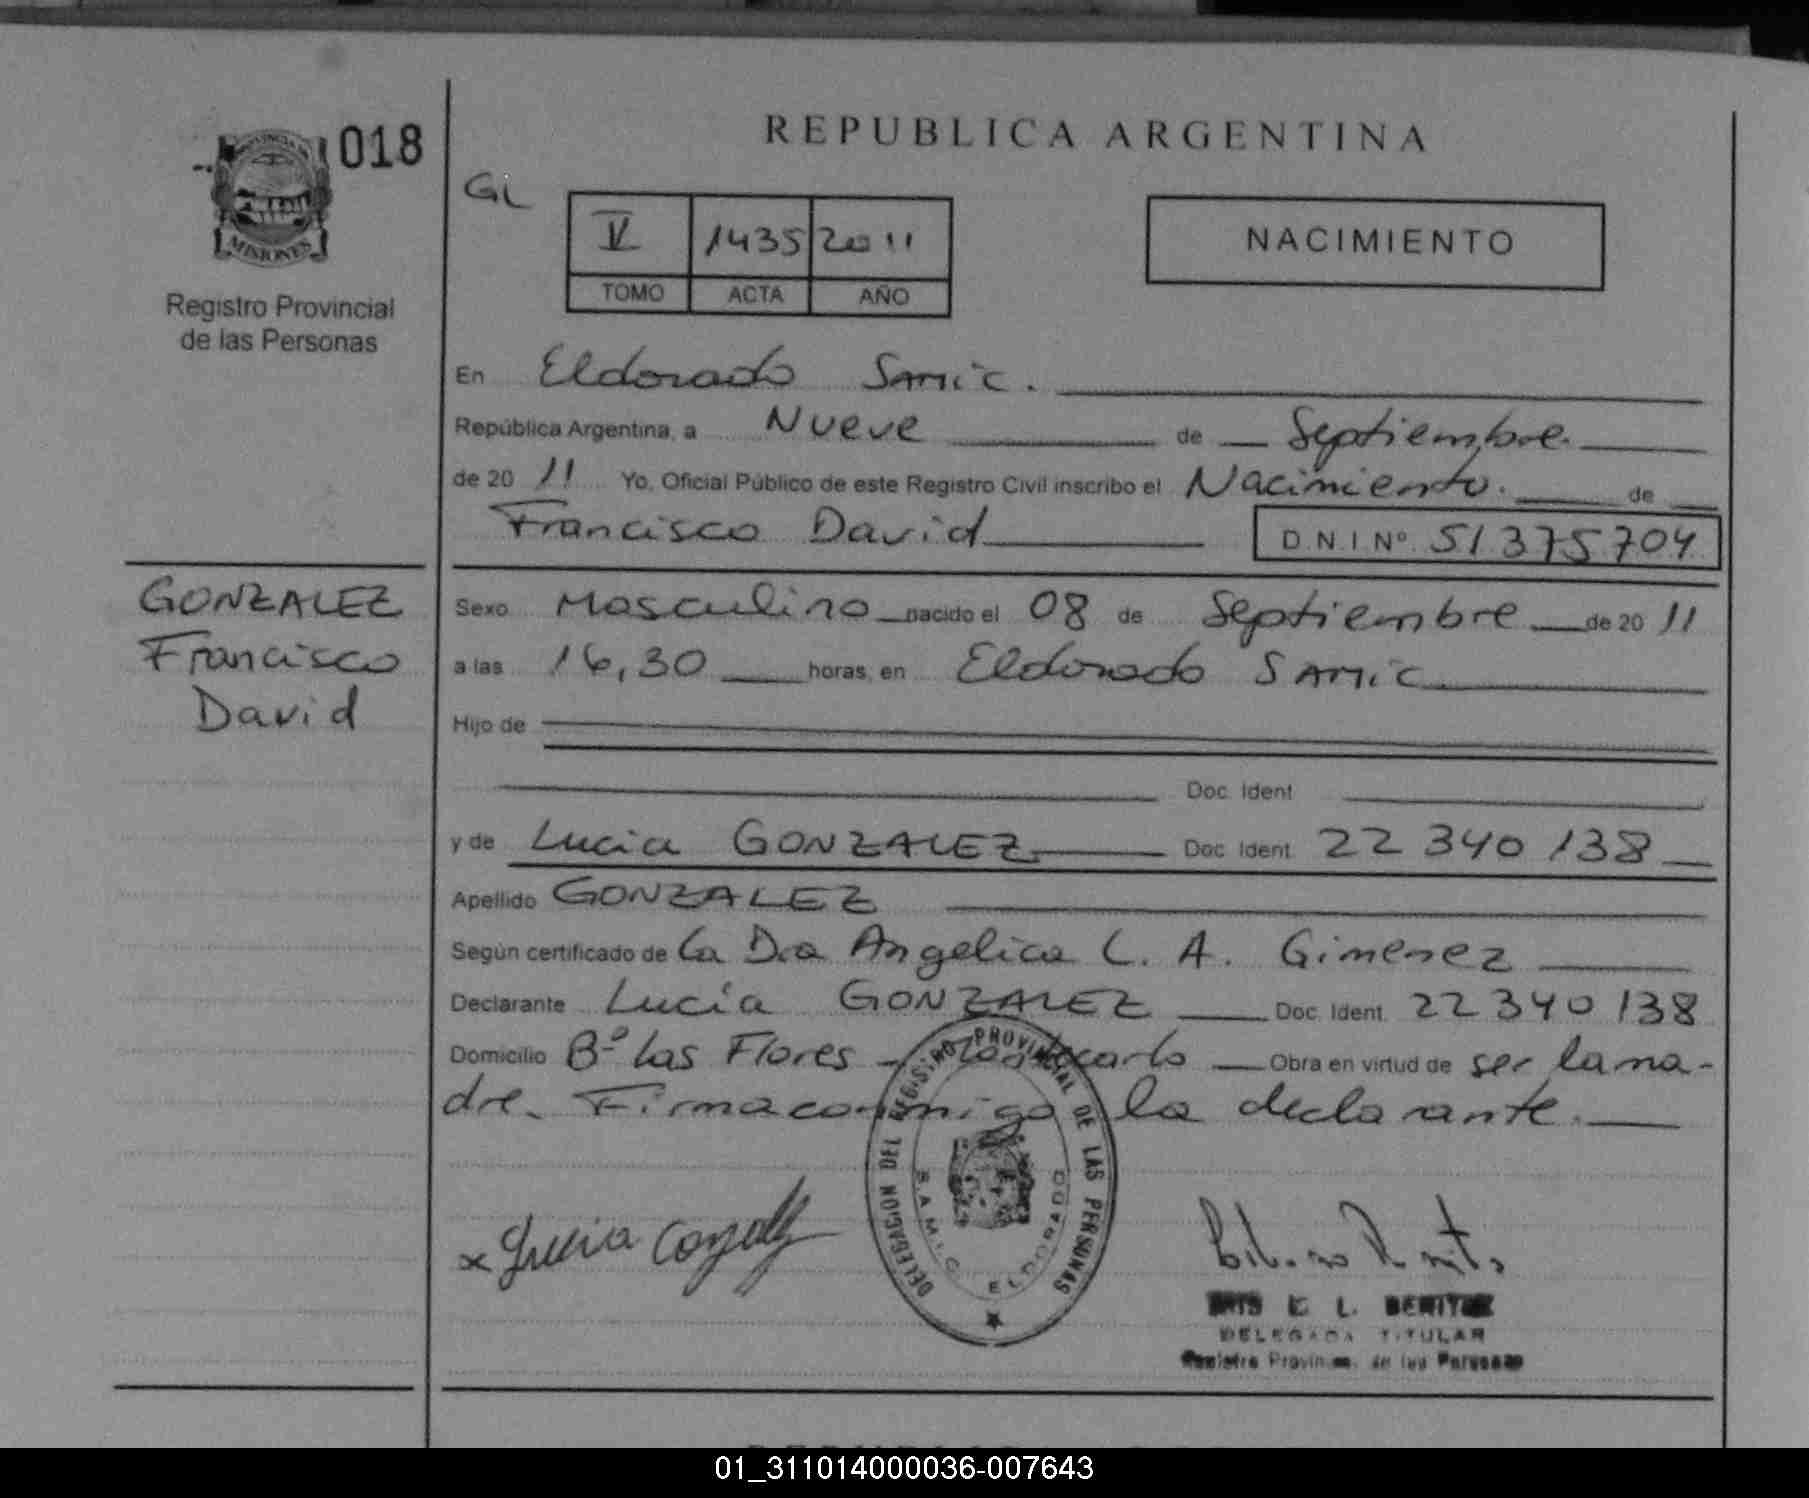 018
PROVINCIA DE
MISIONES
Registro Provincial
de las Personas
REPUBLICA ARGENTINA
GL
V 1435 2011
TOMO ACTA AÑO
NACIMIENTO
En Eldorado SAMIC.
República Argentina, a Nueve de Septiembre.
de 20 11 Yo, Oficial Público de este Registro Civil inscribo el Nacimiento. de
Francisco David D.N.I Nº 51.375704
GONZALEZ
Francisco
David
Sexo Masculino nacido el 08 de Septiembre de 20 11
a las 16,30 horas, en Eldorado SAMIC
Hijo de
Doc. Ident
y de Lucia GONZALEZ Doc. Ident. 22 340 138
Apellido GONZALEZ
Según certificado de la Dra Angelica L. A. Gimenez
Declarante Lucía GONZALEZ Doc. Ident. 22 340 138
Domicilio Bº Las Flores - Obra en virtud de ser la ma-
dre. Firma conmigo la declarante.
DELEGACION DEL REGISTRO PROVINCIAL DE LAS PERSONAS
S.A.M.I.C. ELDORADO
x Lucia Gonzalez
E. L. BENITEZ
DELEGADA TITULAR
Registro Provincial de las Personas
01_311014000036-007643